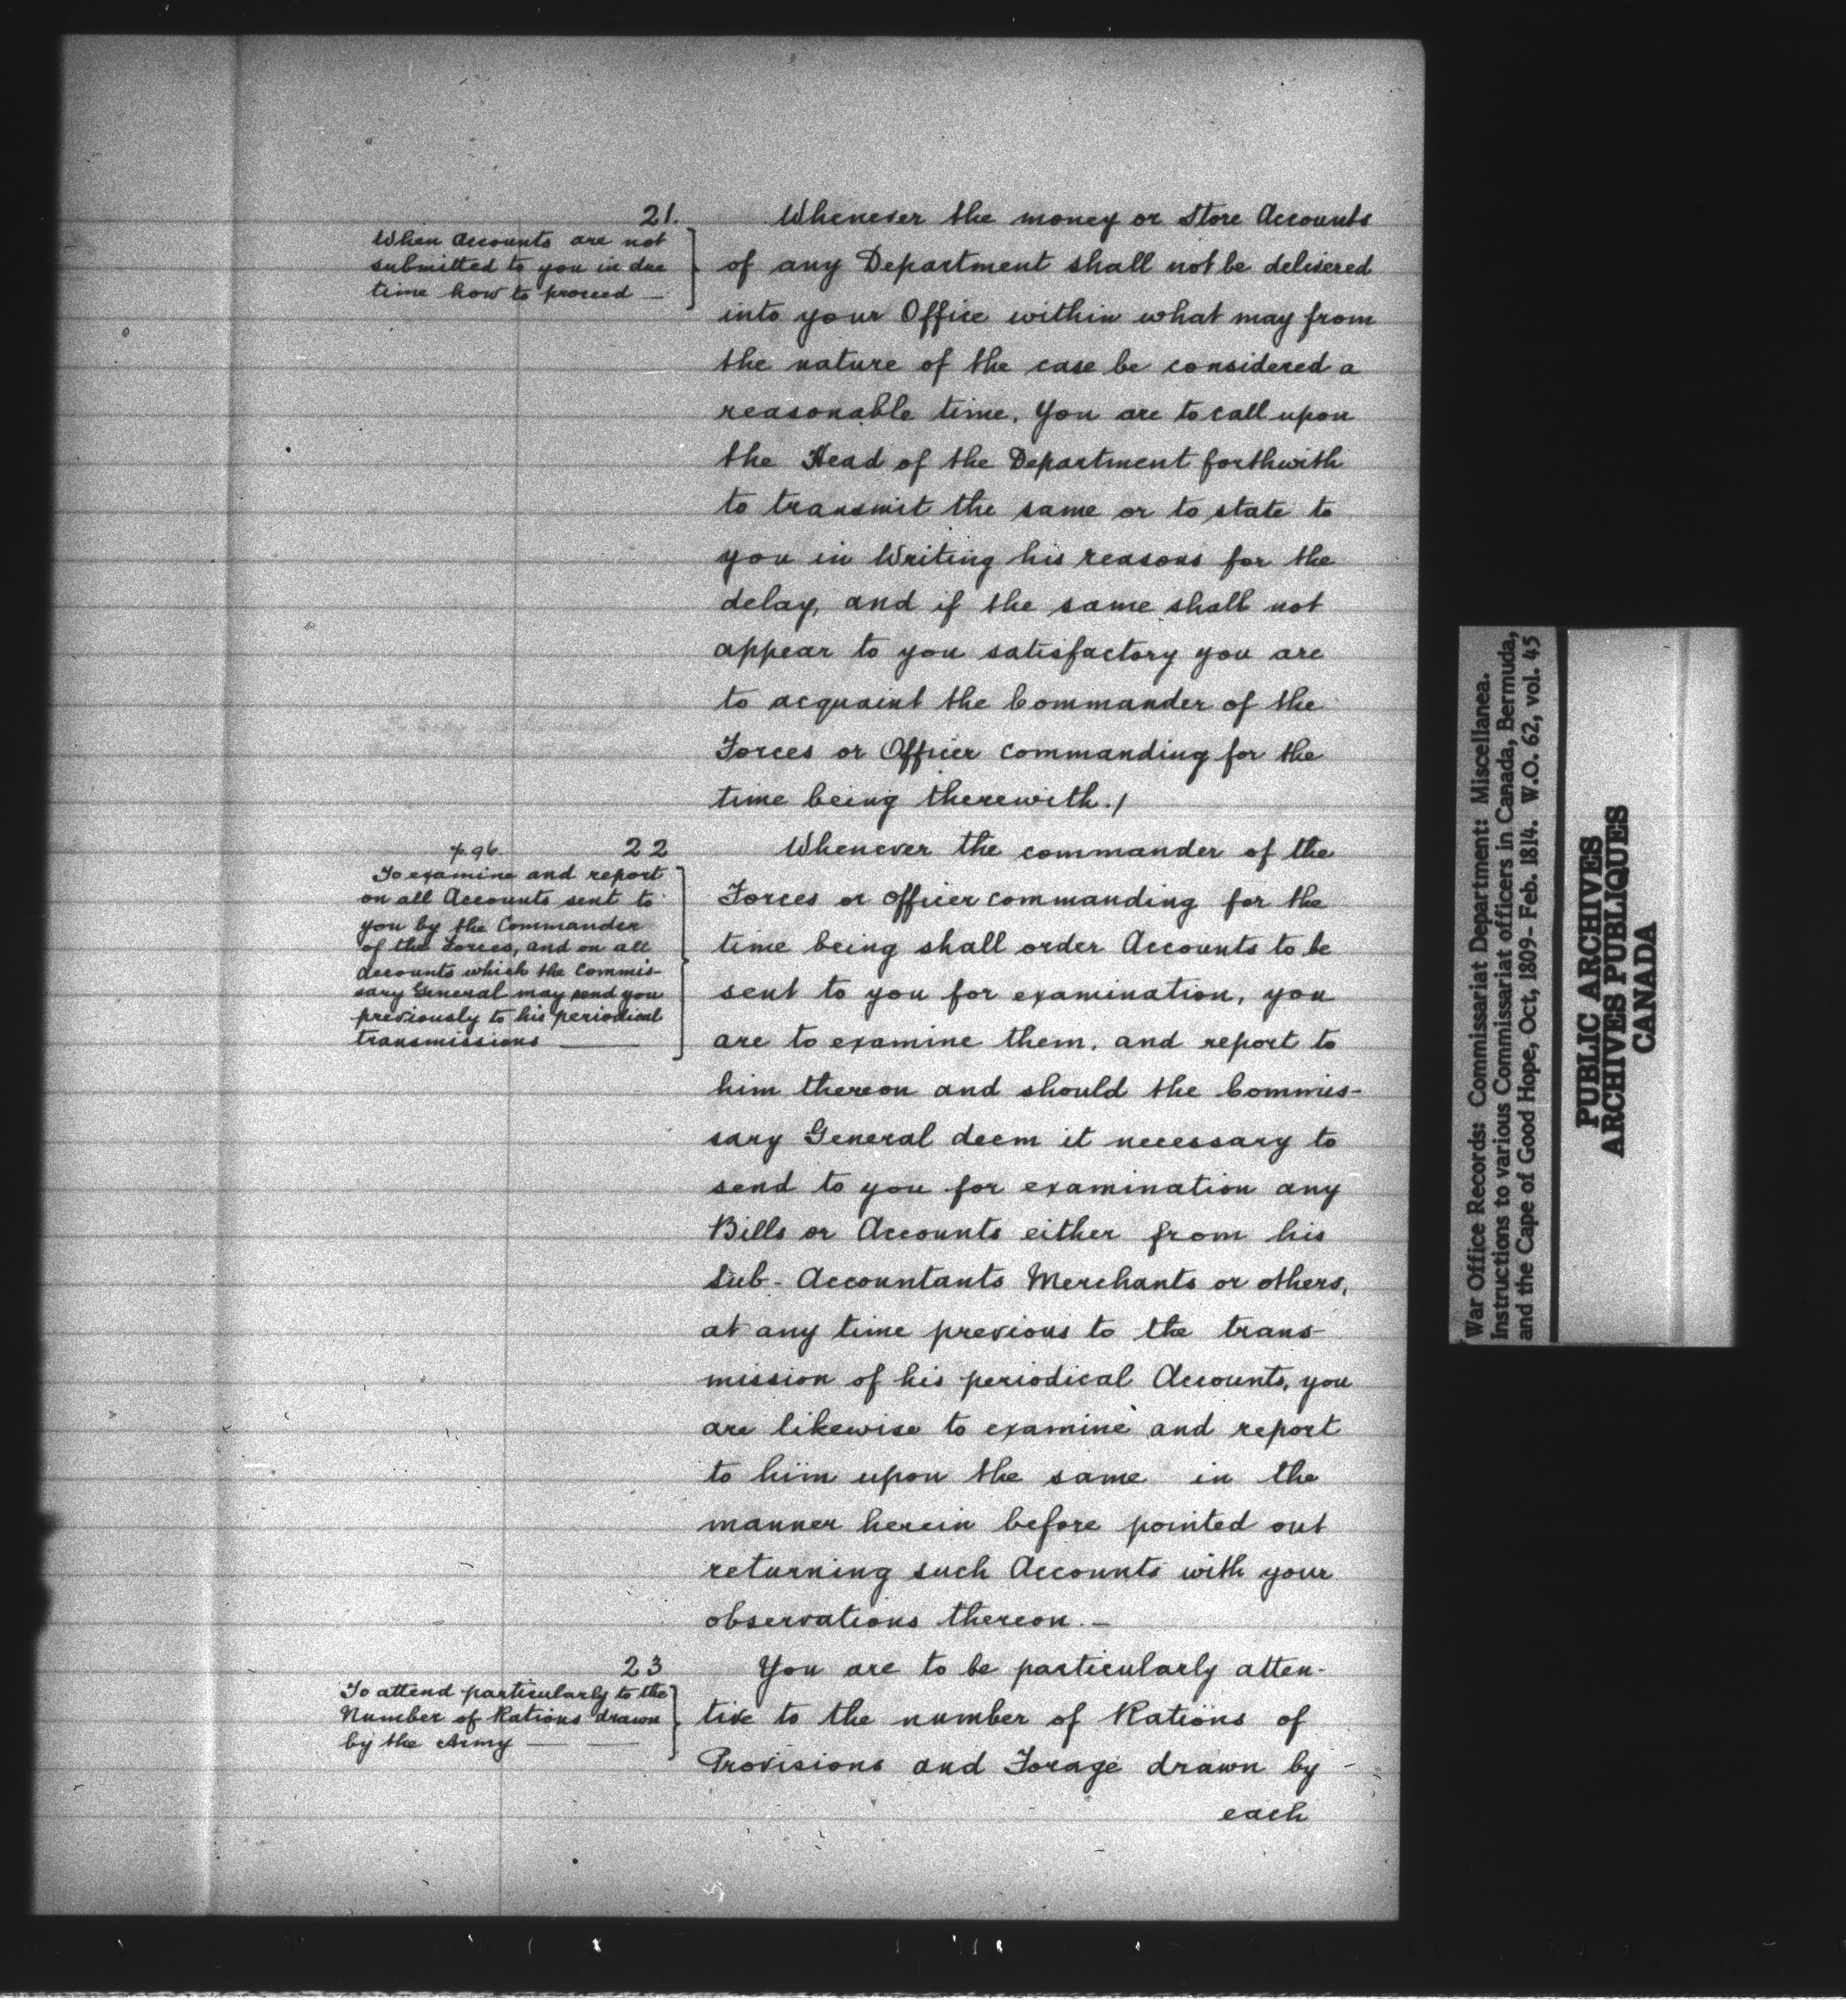 21.
When Accounts are not
submitted to you in due
time how to proceed —
Whenever the money or Store Accounts
of any Department shall not be delivered
into your Office within what may from
the nature of the case be considered a
reasonable time, You are to call upon
the Head of the Department forthwith
to transmit the same or to state to
you in Writing his reasons for the
delay, and if the same shall not
appear to you satisfactory you are
to acquaint the Commander of the
Forces or Officer Commanding for the
time being therewith./
p. 96. 22
To examine and report
on all Accounts sent to
you by the Commander
of the Forces, and on all
Accounts which the Commis-
sary General may send you
previously to his periodical
transmissions —
Whenever the commander of the
Forces or officer commanding for the
time being shall order Accounts to be
sent to you for examination, you
are to examine them, and report to
him thereon and should the Commis-
sary General deem it necessary to
send to you for examination any
Bills or Accounts either from his
Sub-Accountants Merchants or others,
at any time previous to the trans-
mission of his periodical Accounts, you
are likewise to examine and report
to him upon the same in the
manner herein before pointed out
returning such Accounts with your
observations thereon. —
23
To attend particularly to the
Number of Rations drawn
by the Army — —
You are to be particularly atten-
tive to the number of Rations of
Provisions and Forage drawn by
each
War Office Records: Commissariat Department: Miscellanea.
Instructions to various Commissariat officers in Canada, Bermuda,
and the Cape of Good Hope, Oct, 1809- Feb. 1814. W.O. 62, vol. 45
PUBLIC ARCHIVES
ARCHIVES PUBLIQUES
CANADA